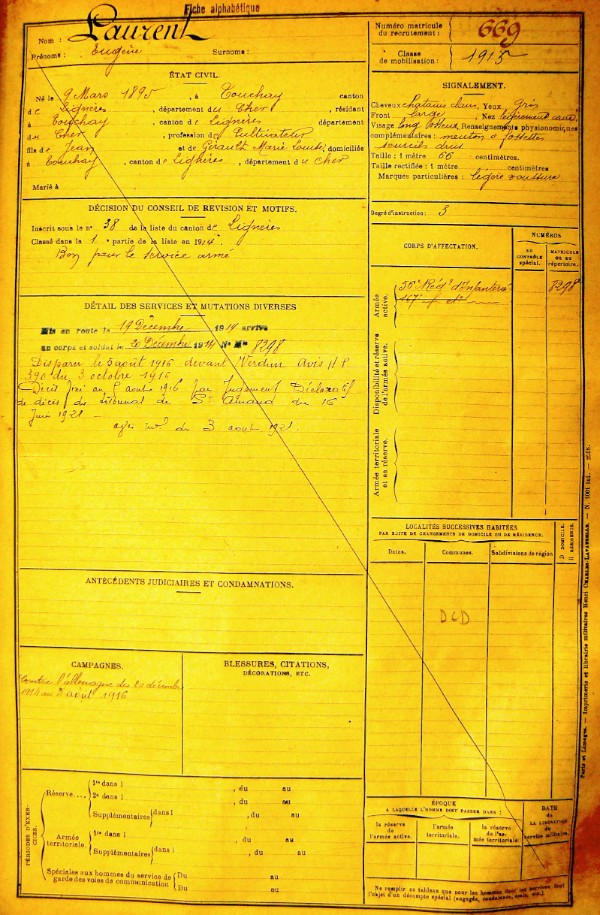 Fiche alphabétique
Nom : Laurent
Prénoms : Eugène Surnoms :
ÉTAT CIVIL.
Né le 9 Mars 1895, à Touchay canton
de Lignères, département du Cher, résidant
à Touchay, canton de Lignères département
du Cher, profession de Cultivateur
fils de Jean et de Girault Marie Louise, domiciliés
à Touchay, canton de Lignères, département du Cher
Marié à
DÉCISION DU CONSEIL DE REVISION ET MOTIFS.
Inscrit sous le n° 38 de la liste du canton de Lignères
Classé dans la 1e partie de la liste en 1914
Bon pour le service armé
DÉTAIL DES SERVICES ET MUTATIONS DIVERSES
Mis en route le 19 Décembre 1914 arrivé
au corps et soldat le 20 Décembre 1914 N° Mle 8298
Disparu le 5 août 1916 devant Verdun Avis M P
390 du 3 octobre 1916
Décès fixé au 5 août 1916 par Jugement Déclaratif
de décès du tribunal de St Amand du 16
Juin 1921
du 3 août 1921
ANTÉCÉDENTS JUDICIAIRES ET CONDAMNATIONS.
CAMPAGNES.
Contre l'Allemagne du 20 décembre
1914 au 5 août 1916
BLESSURES, CITATIONS,
DÉCORATIONS, ETC.
PÉRIODES D'EXERCICES.
Réserve....
1re dans l , du au
2e dans l , du au
Supplémentaires dans l , du au
Armée territoriale.
1re dans l , du au
Supplémentaires dans l , du au
Spéciales aux hommes du service de
garde des voies de communication
Du au
Du au
Numéro matricule
du recrutement : 669
Classe
de mobilisation : 1915
SIGNALEMENT.
Cheveux châtains clairs, Yeux gris
Front large, Nez légèrement cave
Visage long osseux, Renseignements physionomiques
complémentaires : menton à fossettes
sourcils drus
Taille : 1 mètre 66 centimètres.
Taille rectifiée : 1 mètre centimètres
Marques particulières : légère voussure
Degré d'instruction : 3
CORPS D'AFFECTATION.
NUMÉROS
AU CONTRÔLE spécial.
MATRICULE OU AU répertoire.
Armée active.
56e Régt d'Infanterie 8298
Disponibilité et réserve de l'armée active.
Armée territoriale et sa réserve.
LOCALITÉS SUCCESSIVES HABITÉES
PAR SUITE DE CHANGEMENTS DE DOMICILE OU DE RÉSIDENCE.
Dates.
Communes.
Subdivisions de région
D DOMICILE.
R RÉSIDENCE.
DCD
ÉPOQUE
A LAQUELLE L'HOMME DOIT PASSER DANS :
la réserve de l'armée active.
l'armée territoriale.
la réserve de l'armée territoriale
DATE
DE LA LIBÉRATION
du service militaire.
Ne remplir ce tableau que pour les hommes dont les services font
l'objet d'un décompte spécial
Paris et Limoges. — Imprimerie et librairie militaires Henri CHARLES-LAVAUZELLE.